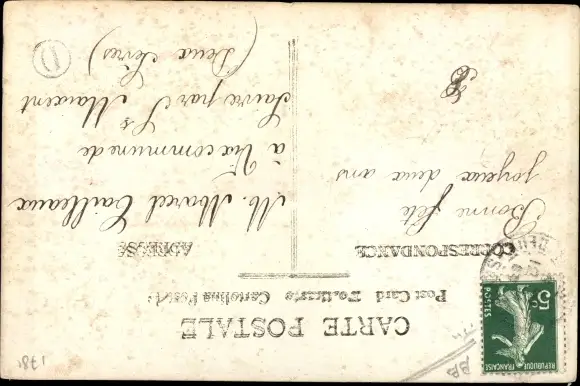 CARTE POSTALE
Post Card Postkarte Cartolina Postale
CORRESPONDANCE
Bonne fête
joyeux deux ans
ADRESSE
M. Marcel Cailleaux
à Vix commune de
Saivre par St Maixent
(Deux Sèvres)
5c
POSTES
REPUBLIQUE FRANÇAISE
BB
1781